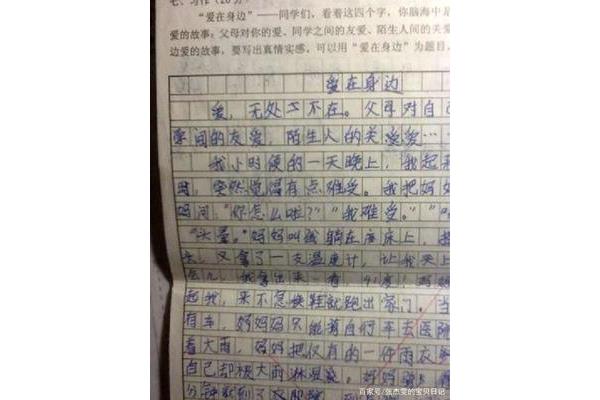 七、习作（20分）
“爱在身边”——同学们，看着这四个字，你脑海中是
爱的故事：父母对你的爱、同学之间的友爱、陌生人间的关爱
边爱的故事，要写出真情实感，可以用“爱在身边”为题目，
爱在身边
爱，无处不在。父母对自己
间的友爱，陌生人的关爱……
我小时候的一天晚上，我起来
突然觉得有点难受。我把妈
妈问：“你怎么啦？”“我难受。”
“头晕。”妈妈叫我躺在床上，
去，又拿了一支温度计，让我夹上
会儿，我拿出来一看，41度！妈妈
起我，来不急换鞋就跑出家门。当
有车，妈妈只能骑自行车去医院
着大雨，妈妈把仅有的一件雨衣
自己却被大雨淋湿
分钟就到了
百家号/张杰雯的宝贝日记